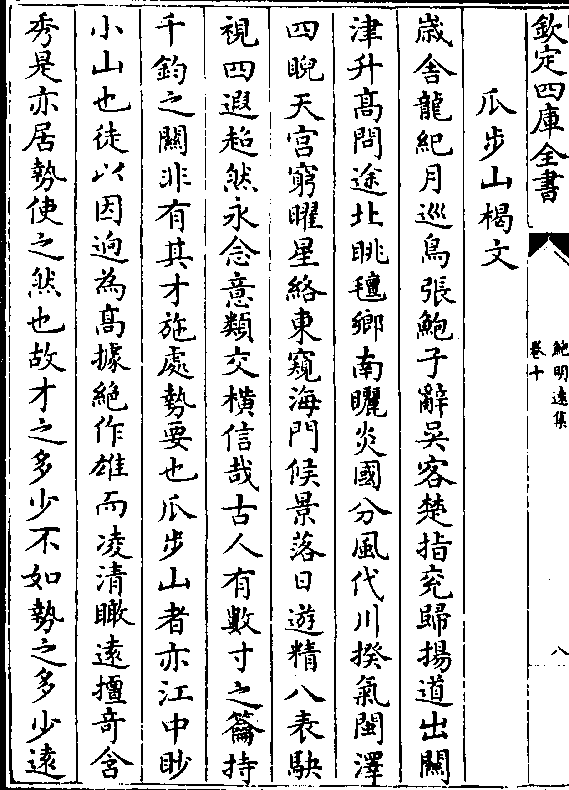 欽定四庫全書
鮑明遠集
卷十
八
瓜步山楬文
嵗舍龍紀月廵鳥張鮑子辭吳客楚指兖歸揚道出闗
津升髙問途北眺氊鄉南曬炎國分風代川揆氣閩澤
四睨天宫窮曜星絡東窺海門候景落日遊精八表駃
視四遐超然永念意類交横信哉古人有數寸之籥持
千鈞之闗非有其才施處勢要也瓜步山者亦江中眇
小山也徒以因逈為髙據絶作雄而凌清瞰逺擅竒含
秀是亦居勢使之然也故才之多少不如勢之多少逺